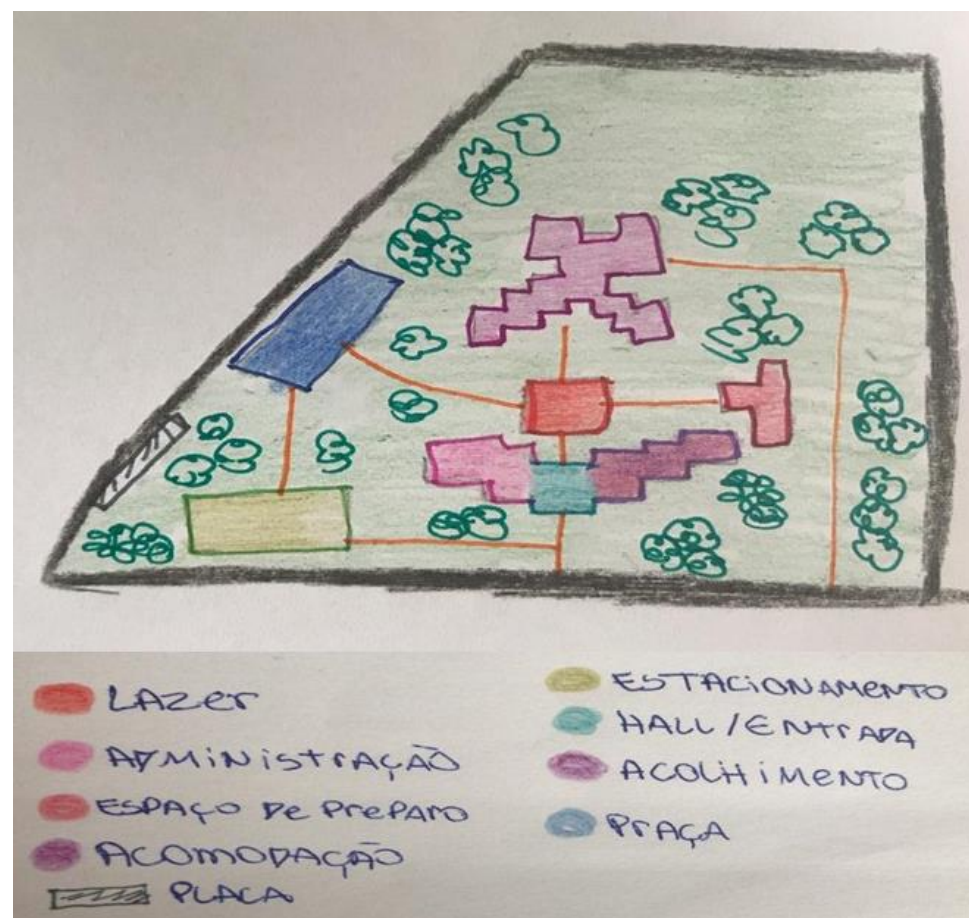 LAZER
ADMINISTRAÇÃO
ESPAÇO DE PREPARO
ACOMODAÇÃO
PLACA
ESTACIONAMENTO
HALL/ENTRADA
ACOLHIMENTO
PRAÇA